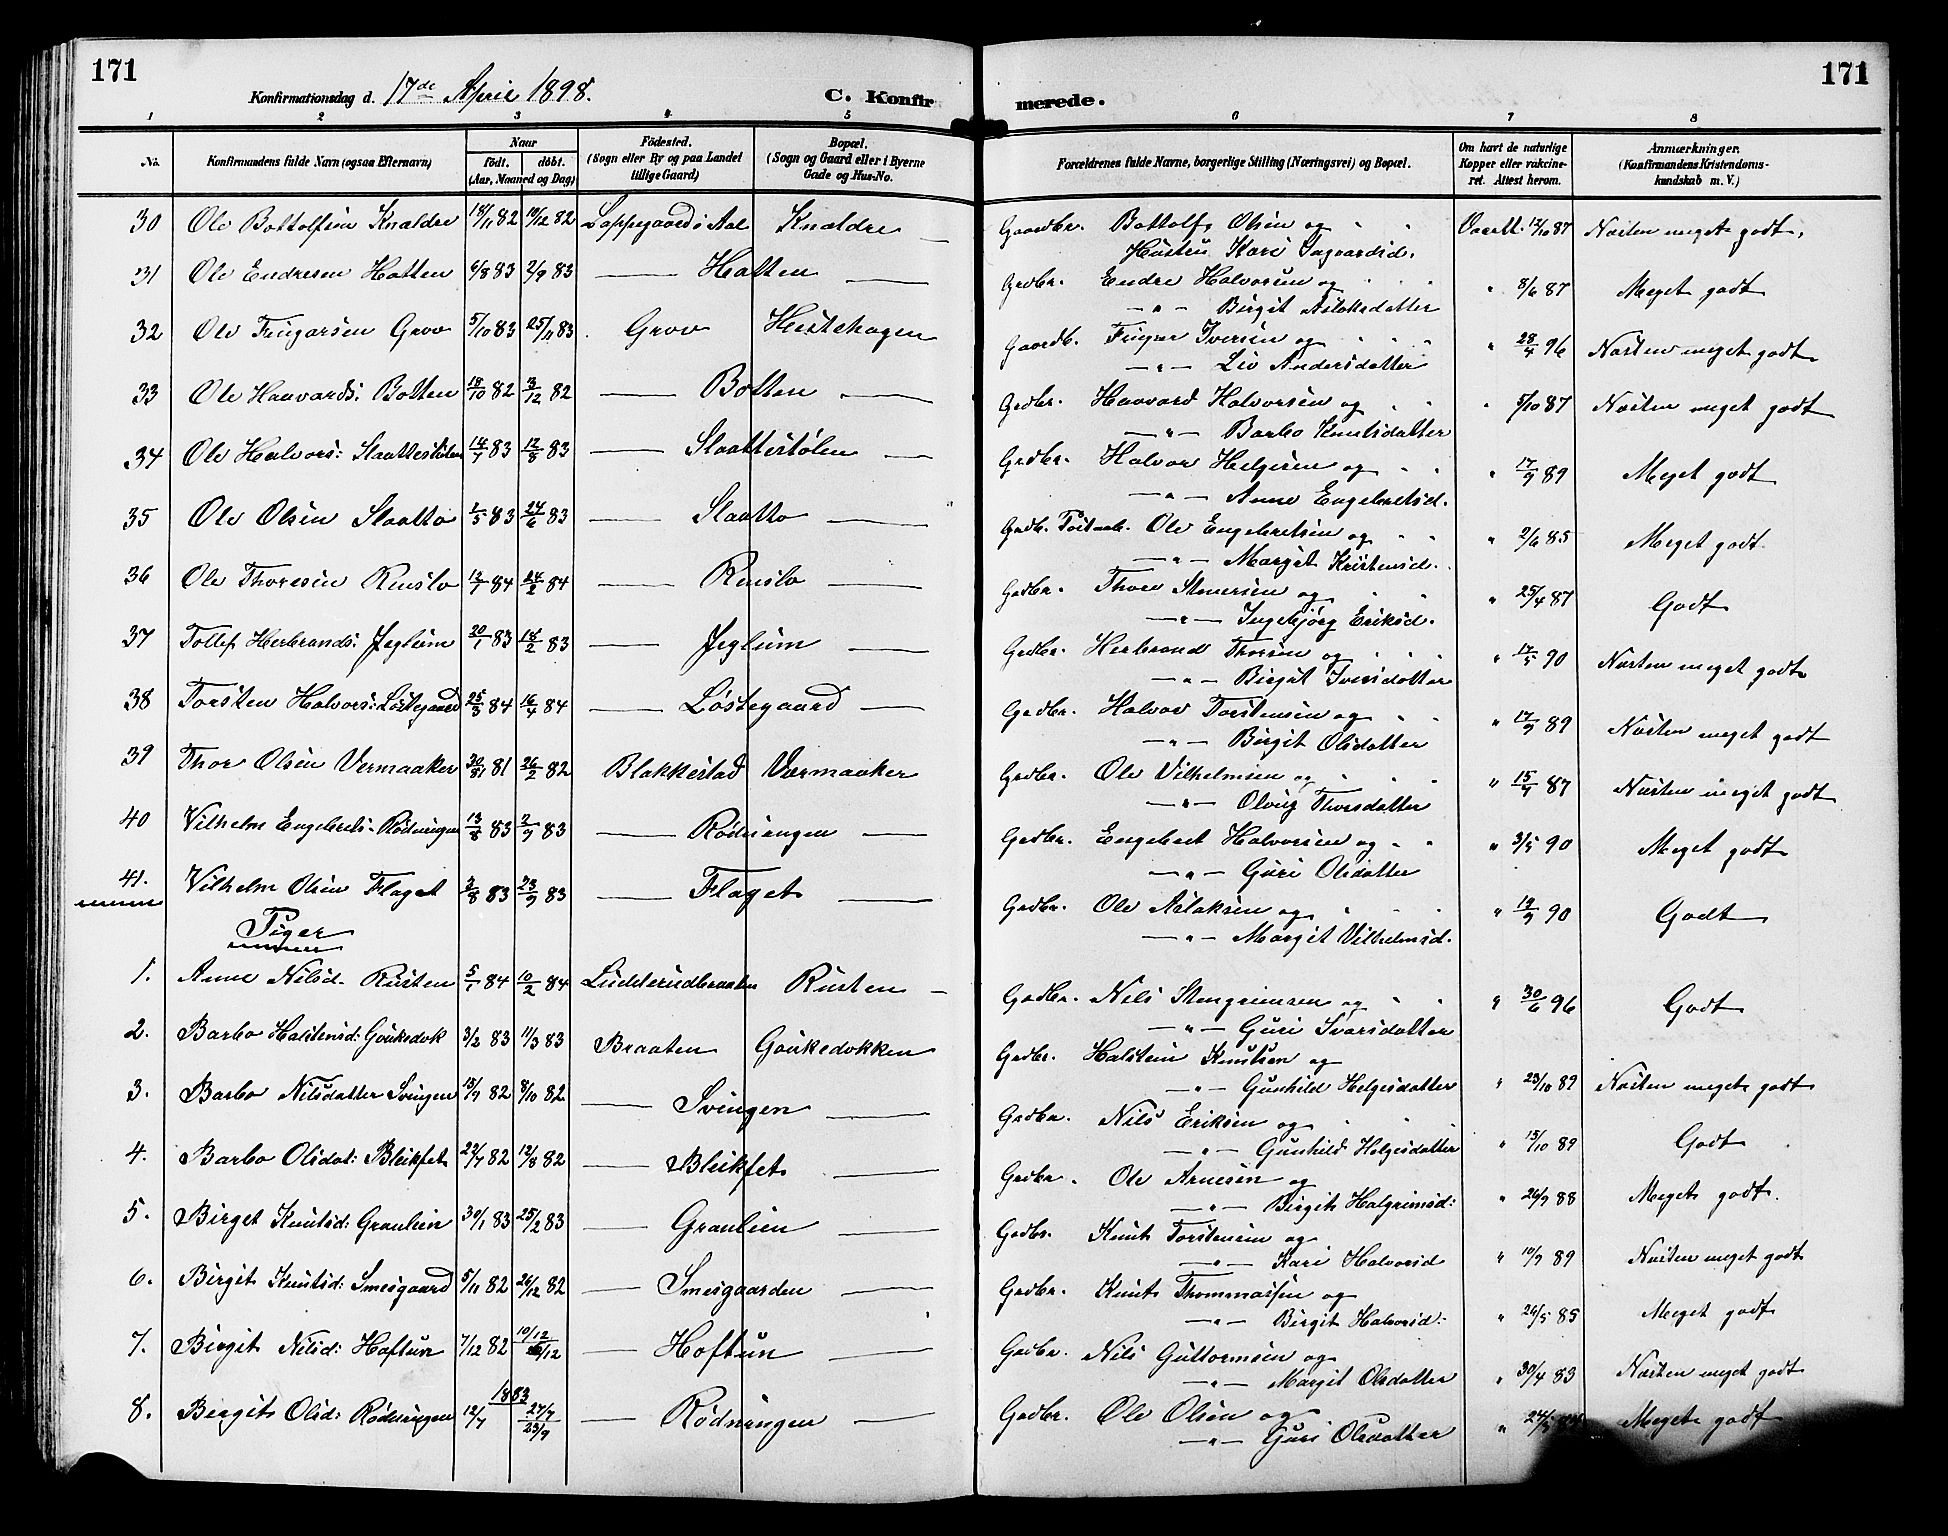 171
171
Konfirmationsdag d. 17de April 1898.
C. Konfir
merede.
1 2 3 4 5 6 7 8
No.
Konfirmandens fulde Navn (ogsaa Efternavn)
Naar
födt. döbt.
(Aar, Maaned og Dag)
Födested.
(Sogn eller By og paa Landet
tillige Gaard)
Bopæl.
(Sogn og Gaard eller i Byerne
Gade og Hus-No.
Forældrenes fulde Navne, borgerlige Stilling (Næringsvei) og Bopæl.
Om havt de naturlige
Kopper eller vakcine-
ret. Attest herom.
Anmærkninger.
(Konfirmandens Kristendoms-
kundskab m. V.)
30 Ole Bottolfsen Knaldre 18/11 82 19/12 82 Loppegaard i Aal Knaldre — Gaardbr. Bottolf Olsen og Vacatt. 12/10 87 Næsten meget godt,
Hustru Kari Sagvardsd.
31 Ole Endresen Hatten 6/8 83 2/9 83 — Hatten — Grdbr. Endre Halvorsen og " 8/6 87 Meget godt
— " — Birgit Aslaksdatter
32 Ole Fingarsen Grov 5/10 83 25/11 83 Grov Hestehagen Gaardb. Fingar Iversen og " 28/4 96 Næsten meget godt
— " — Liv Andersdatter
33 Ole Haavards: Botten 18/10 82 3/12 82 — Botten — Grdbr. Haavard Halvorsen og " 5/10 87 Næsten meget godt
— " — Barbo Knutsdatter
34 Ole Halvors: Slaattestølen 14/7 83 12/8 83 — Slaattestølen — Grdbr. Halvor Helgesen og " 17/9 89 Meget godt
— " — Anne Engebretsd.
35 Ole Olsen Slaatto 2/5 83 24/6 83 — Slaatto — Grdb. Ole Engebretsen og " 2/6 85 Meget godt
— " — Margit Kristensd.
36 Ole Thoresen Renslo 12/1 84 24/2 84 — Renslo — Grdbr. Thore Stenersen og " 25/4 87 Godt
— " — Ingebjörg Eriksd.
37 Tollef Herbrands: Jeglum 20/1 83 18/2 83 — Jeglum — Grdbr. Herbrand Thorsen og " 17/5 90 Næsten meget godt
— " — Birgit Iversdatter
38 Torsten Halvors: Løstegaard 25/3 84 16/4 84 — Løstegaard — Grdbr. Halvor Torstensen og " 17/9 89 Næsten meget godt
— " — Birgit Olsdatter
39 Thor Olsen Vermaaker 81 26/2 82 Blakkestad Værmaaker Grdbr. Ole Vilhelmsen og " 15/9 87 Næsten meget godt
— " — Olvug Thorsdatter
40 Vilhelm Engebrets- Rödningen 13/8 83 2/9 83 — Rödningen — Grdbr. Engebret Halvorsen og " 3/5 90 Meget godt
— " — Guri Olsdatter
41. Vilhelm Olsen Flaget 2/8 83 23/9 83 — Flaget — Grdbr. Ole Aslaksen og " 19/9 90 Godt
— " — Margit Vilhelmsd.
Piger
1. Anne Nilsd. Rusten 5/1 84 10/2 84 Rusten — Grdbr. Nils Stengrimsen og " 30/6 96 Godt
— " — Guri Ivarsdatter
2. Barbo Halstensd: Goukedok 3/2 83 11/3 83 Braaten Goukedokken Grdbr. Halstein Knutsen og
— " — Gunhild Helgesdatter " 23/10 89 Næsten meget godt
3. Barbo Nilsdatter Svingen 13/9 82 8/10 82 — Svingen — Grdbr. Nils Eriksen og
— " — Gunhild Helgesdatter " 15/10 89 Godt
4. Barbo Olsdat: Bleikfet 22/7 82 12/8 82 — Bleikfet — Grdbr. Ole Arnesen og
— " — Birgit Halgrimsd: " 26/9 88 Meget godt.
5. Birget Knutsd: Granlien 30/1 83 25/2 83 — Granlien — Grdbr. Knut Torstensen og
— " — Kari Halvorsd " 10/9 89 Næsten meget godt
6. Birgit Knutsd: Smesgaard 5/11 82 26/12 82 — Smesgaarden — Grdbr. Knut Thommassen og
— " — Birgit Halvorsd: " 26/5 85 Meget godt
7. Birgit Nilsd: Hoftun 7/12 82 10/12 — Hoftun — Grdbr. Nils Guttormsen og
— " — Margit Olsdatter " 30/4 83 Næsten meget godt
1883
8. Birgit Olsd: Rödningen 12/7 27/7 23/9 — Rödningen — Grdbr. Ole Olsen og
— " — Guri Olsdatter " Meget godt